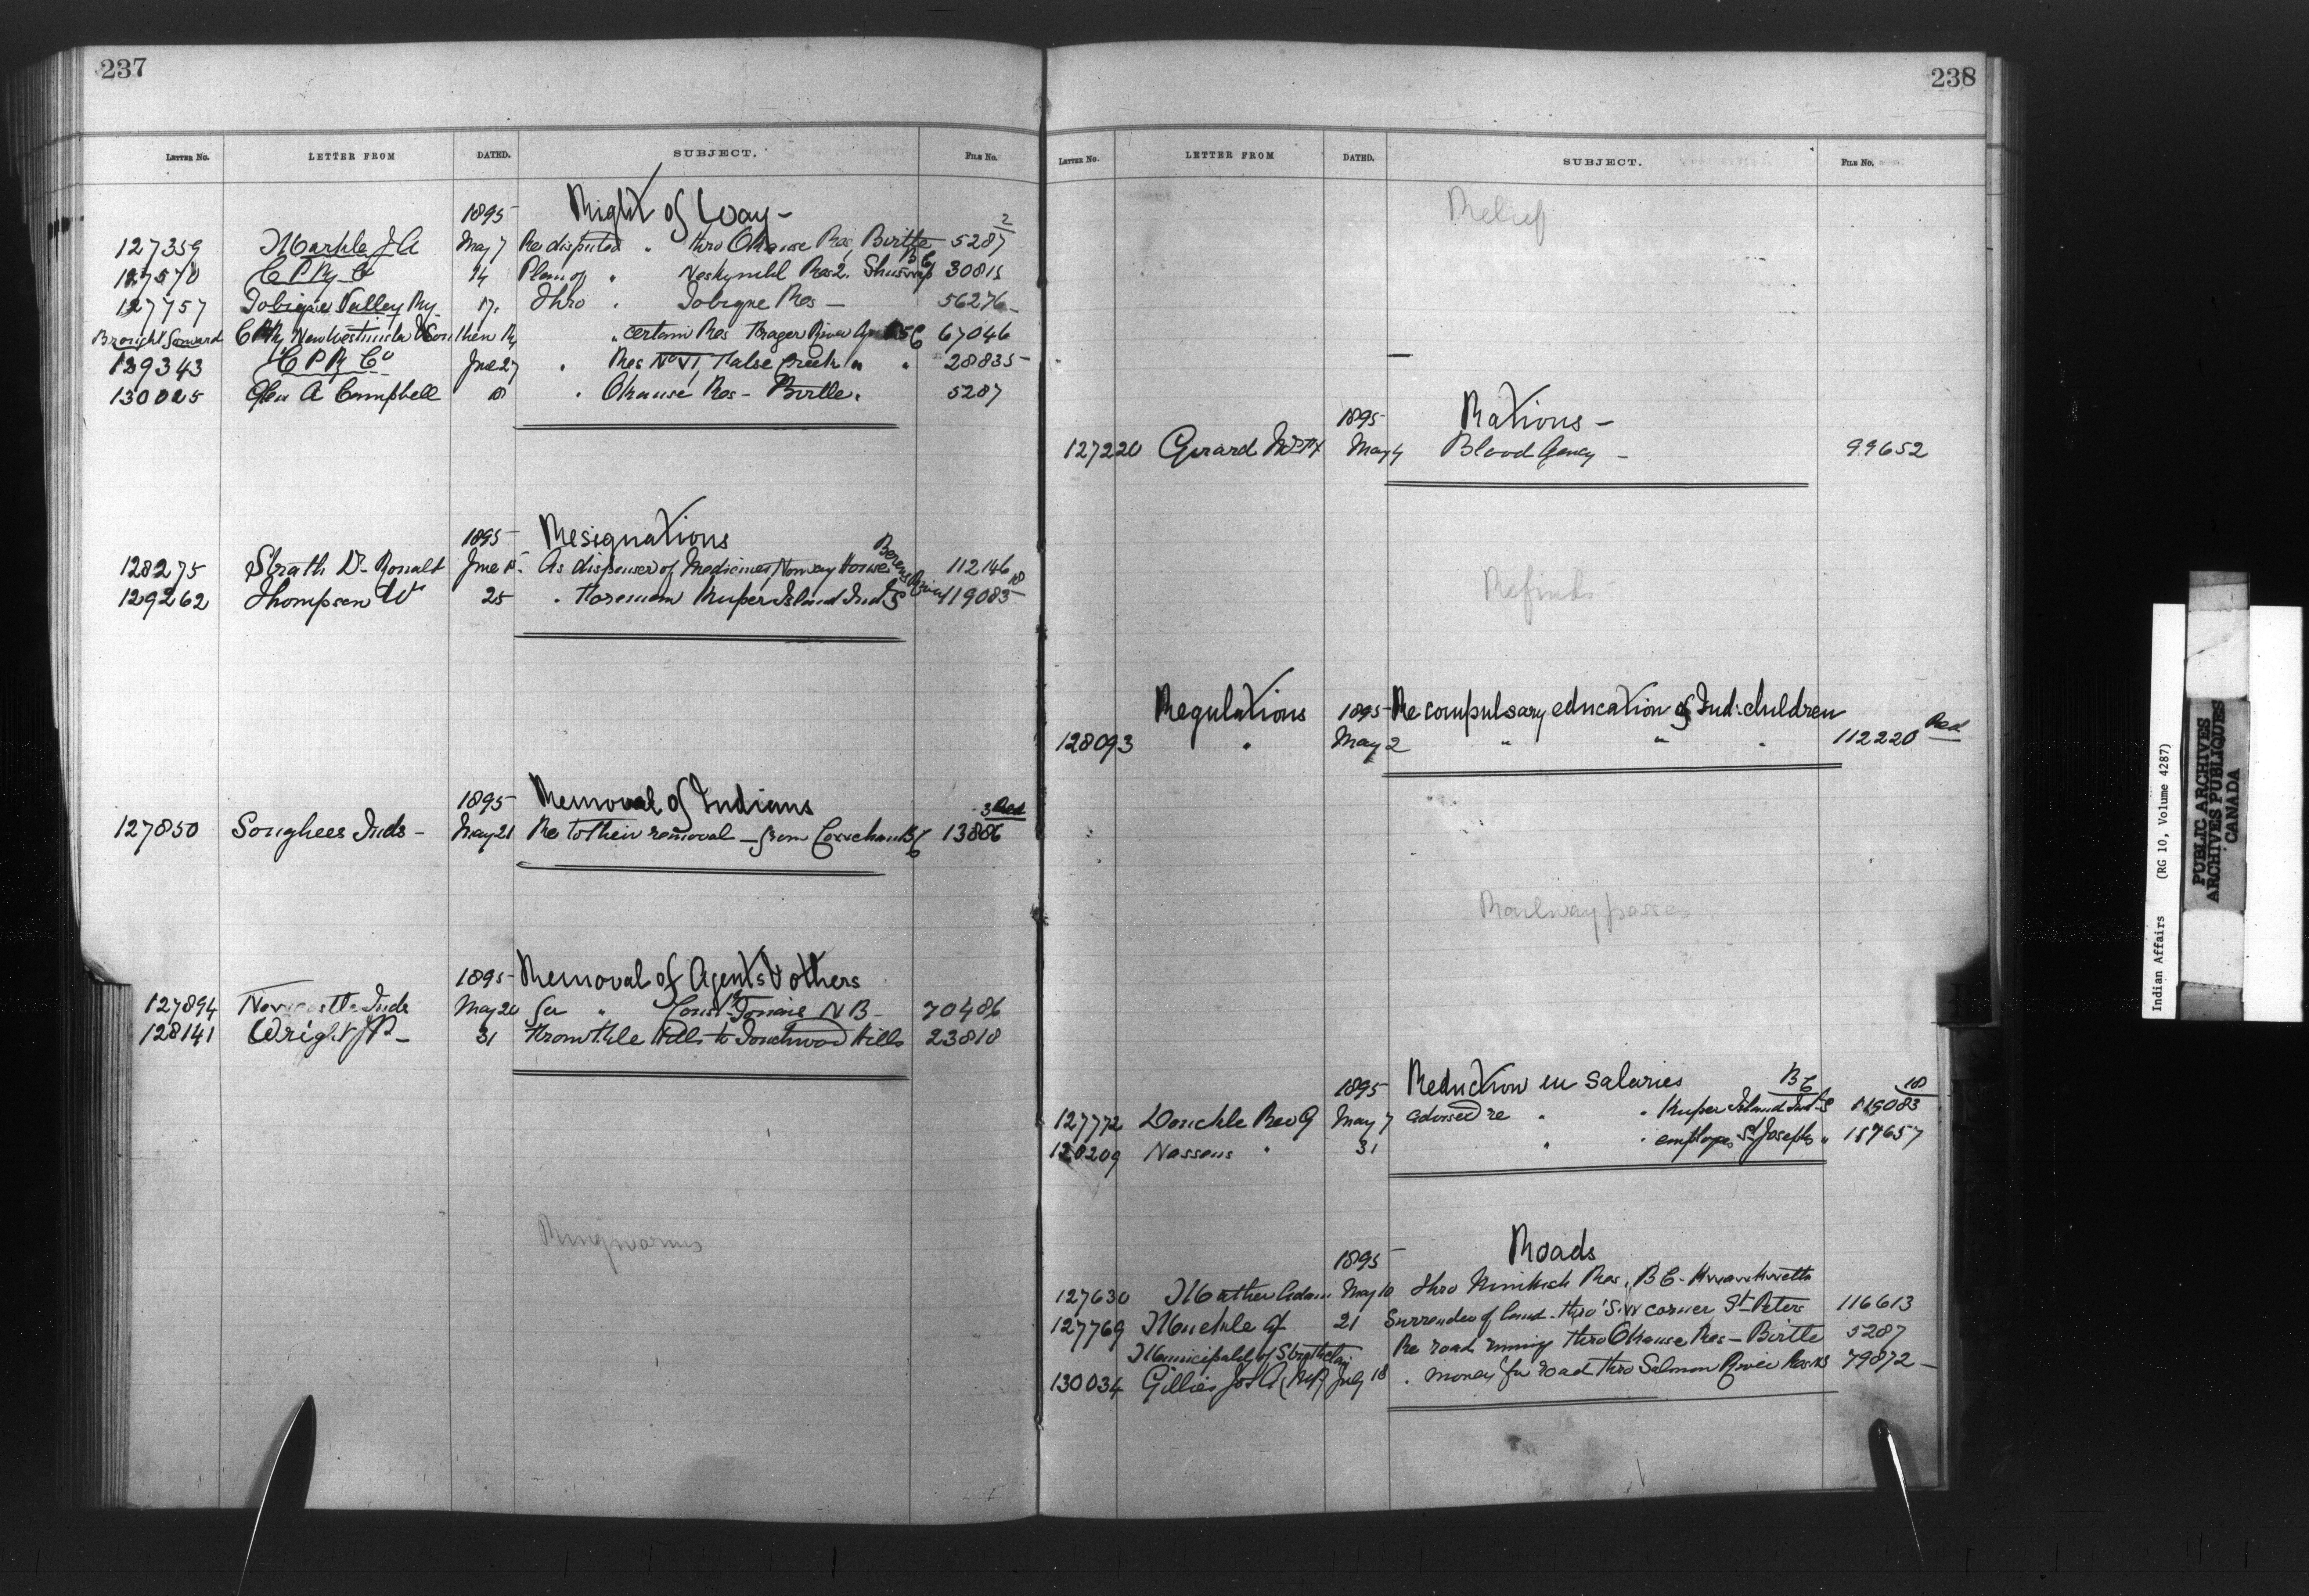 237
LETTER No. LETTER FROM DATED. SUBJECT. FILE No.
1895 Right of Way - 2
127359 Markle J A May 7 Re disputed " thro Okanse Res, Birtle 5287
127570 C P Ry Co 14 Plan of " Neskynihl Res 2. Shuswap B C 30815
127757 Tobique Valley Ry 17. Thro " Tobique Res - 56276
Brought forward C P Ry New Westminster & Southern Ry " certain Res Frazer River B C 67046
129343 C P R Co June 27 " Res No VI, False Creek " " 28835
130025 Glen A Campbell 18 " Okanse Res - Birtle. 5287
1895 Resignations
128275 Strath Dr Ronald June 15. As dispenser of Medicines, Norway House Berens River 112146
129262 Thompson W 25 " Foreman Kuper Island Ind S 119083 18
1895 Removal of Indians 3 Red
127850 Songhees Inds - May 21 Re to their removal - from B C 13886
1895 Removal of Agents & others
127894 Newcastle Inds May 20 for " N B - 70486
128141 Wright J P - 31 From File Hills to Touchwood Hills 23818
Ringworms
238
LETTER No. LETTER FROM DATED. SUBJECT. FILE No.
Relief
1895 Rations -
127220 Girard May 4 Blood Agency - 99652
Refunds
Regulations 1895 Re compulsary education of Ind: children
128093 " May 2 " " " 112220 Red
Railway passes
1895 Reduction in Salaries B C 18
127772 Donckle Rev G May 7 advised re " " Kuper Island Ind S 119083
128209 Nassens " 31 " " employes St Josephs " 157657
1895 Roads
127630 Mather Adam May 10 thro Nimkish Res, B C -
127769 Muckle A 21 Surrender of land - thro' S.W corner St Peters 116613
Municipality of Strathclair Re road runing thro Okanse Res - Birtle 5287
130034 Gillies Jos A (MP) July 18 " money for road thro Salmon River Res NS 79872 -
Indian Affairs (RG 10, Volume 4287)
PUBLIC ARCHIVES
ARCHIVES PUBLIQUES
CANADA